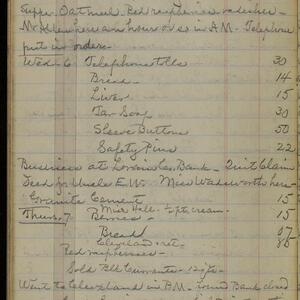 Supper Oatmeal - Red raspberries radishes -
Mr Allen here an hour or so in A.M. Telephone
put in order.
Wed - 6 Telephone tolls 30
Bread 14
Liver 15
Tar Soap 30
Sleeve Buttons 50
Safety Pins 22
Business at Lorain Co. Bank - Quit Claim
Deed for Uncle E.W. Miss Wadsworth here -
Granite Cement 15
Thurs. 7 Mrs Hall cream -
Berries 15
Bread 07
Cleveland - ret -
Red raspberries -
Sold Blk Currants - 12 qts -
Went to Cleveland in P.M. - found Bank closed